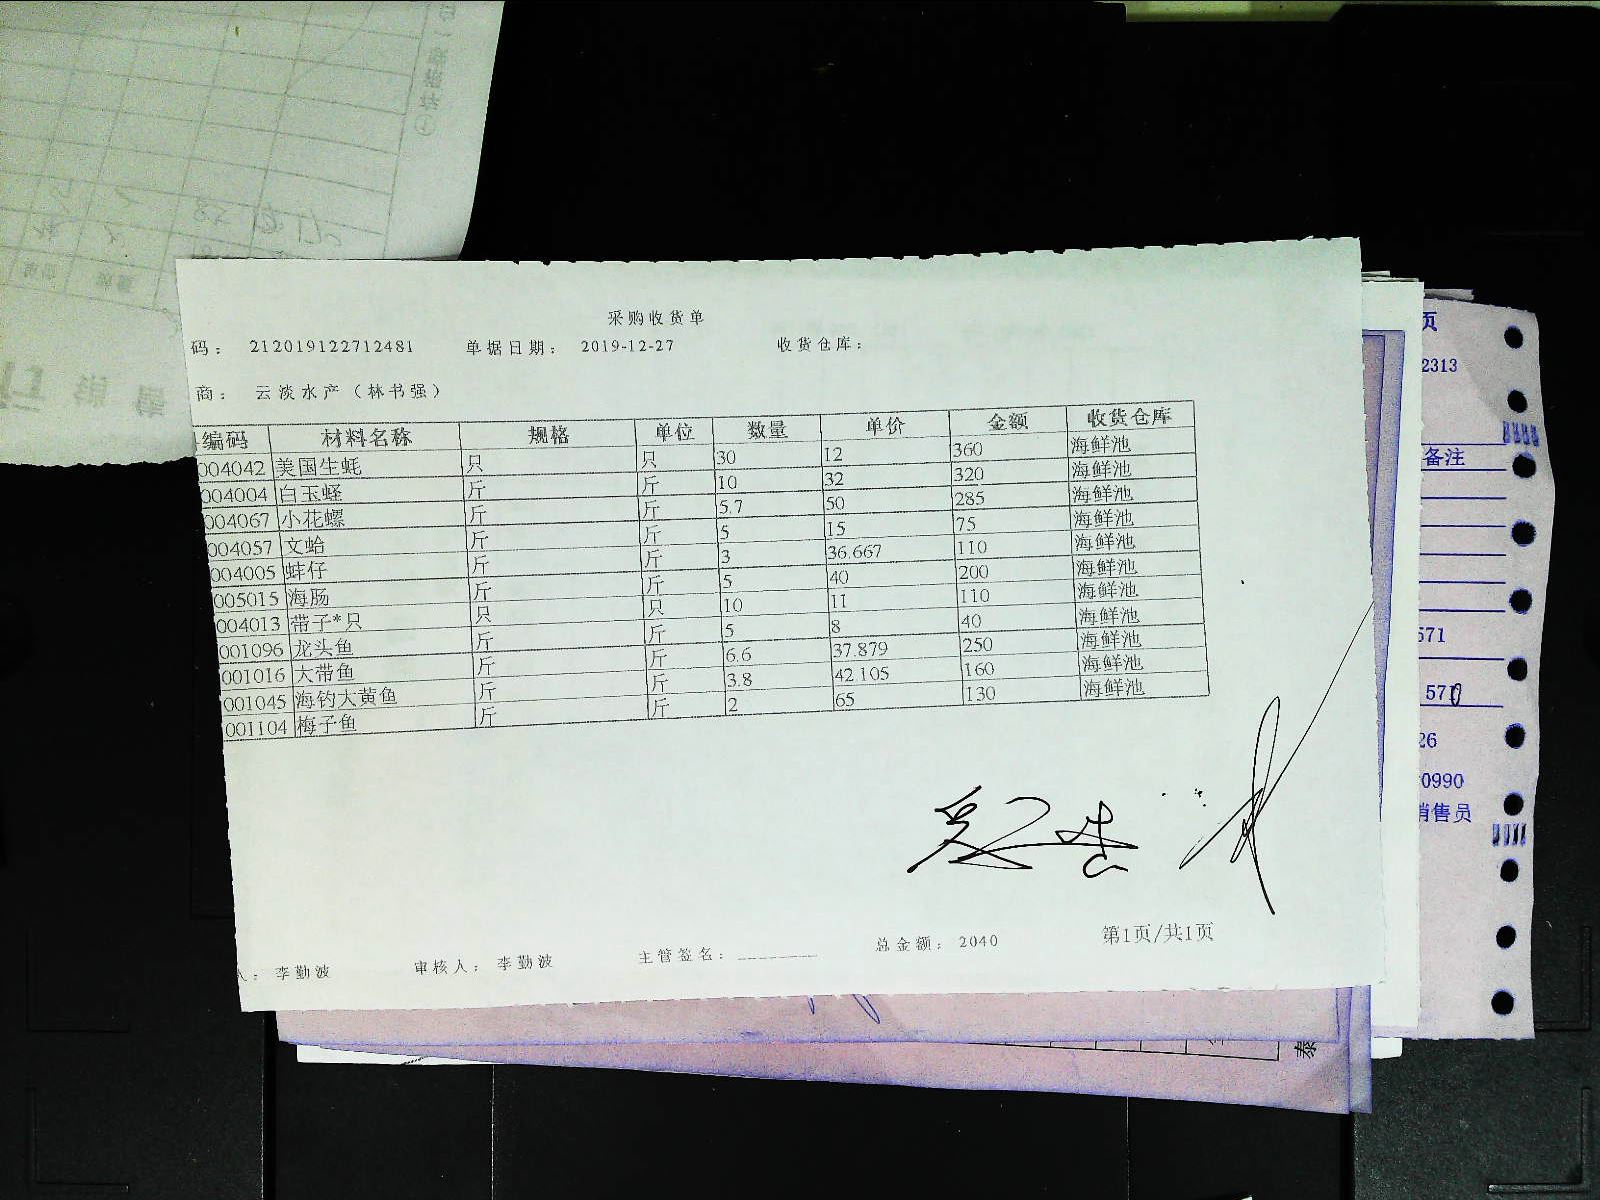 采购收货单
码： 212019122712481 单据日期： 2019-12-27 收货仓库：
商： 云淡水产（林书强）
编码 材料名称 规格 单位 数量 单价 金额 收货仓库
004042 美国生蚝 只 只 30 12 360 海鲜池
004004 白玉蛏 斤 斤 10 32 320 海鲜池
004067 小花螺 斤 斤 5.7 50 285 海鲜池
004057 文蛤 斤 斤 5 15 75 海鲜池
004005 蚌仔 斤 斤 3 36.667 110 海鲜池
005015 海肠 斤 斤 5 40 200 海鲜池
004013 带子*只 只 只 10 11 110 海鲜池
001096 龙头鱼 斤 斤 5 8 40 海鲜池
001016 大带鱼 斤 斤 6.6 37.879 250 海鲜池
001045 海钓大黄鱼 斤 斤 3.8 42.105 160 海鲜池
001104 梅子鱼 斤 斤 2 65 130 海鲜池
人： 李勤波 审核人： 李勤波 主管签名： 总金额： 2040 第1页/共1页
页
2313
备注
571
570
26
0990
销售员
泰